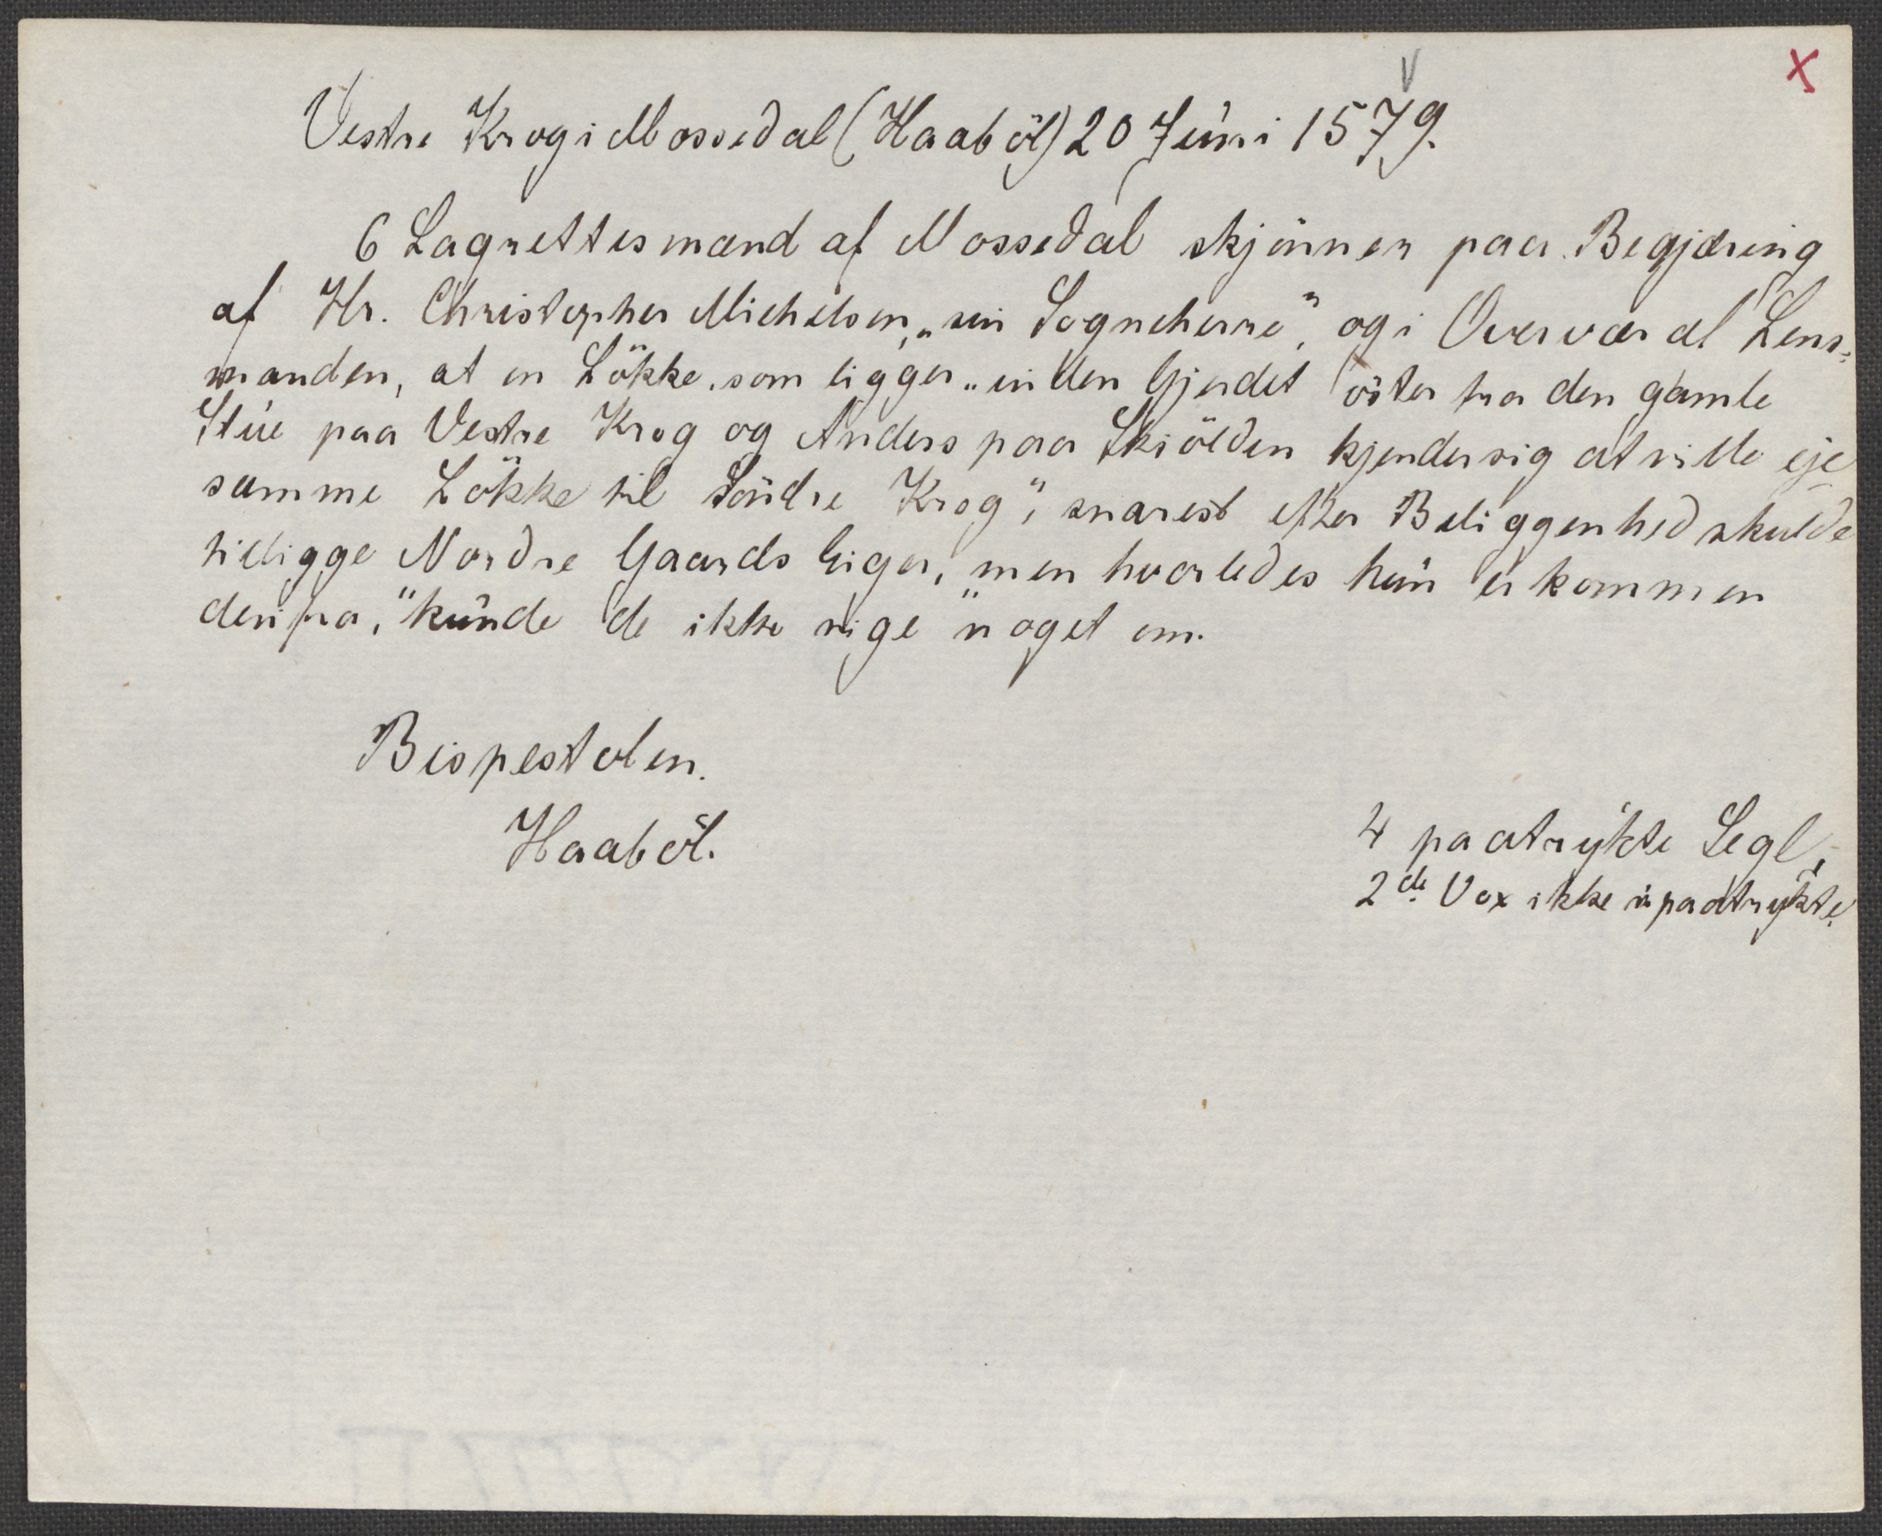 V
X
Vestre Krog i Mossedal (Haaböl) 20 Juni 1579.
6 Lagrettesmænd af Mossedal skjönner paa Begjæring
af Hr. Christopher Michelsen, „sin Sogneherre“, og i Overvær af Lens-
manden, at en Lökke, som ligger „inden Gjerdet öster fra den gamle
Stue paa Vestre Krog og Anders paa Skiölden kjender sig at ville eje
samme Lökke til Söndre Krog“, snarest efter Beliggenhed skulde
tilligge Nordre Gaards Eiger, men hvorledes hun er kommen
derifra, “kunde de ikke sige “noget om.
Bispestolen.
Haaböl.
4 paatrykte Segl,
2de Vox ikke paatrykte.